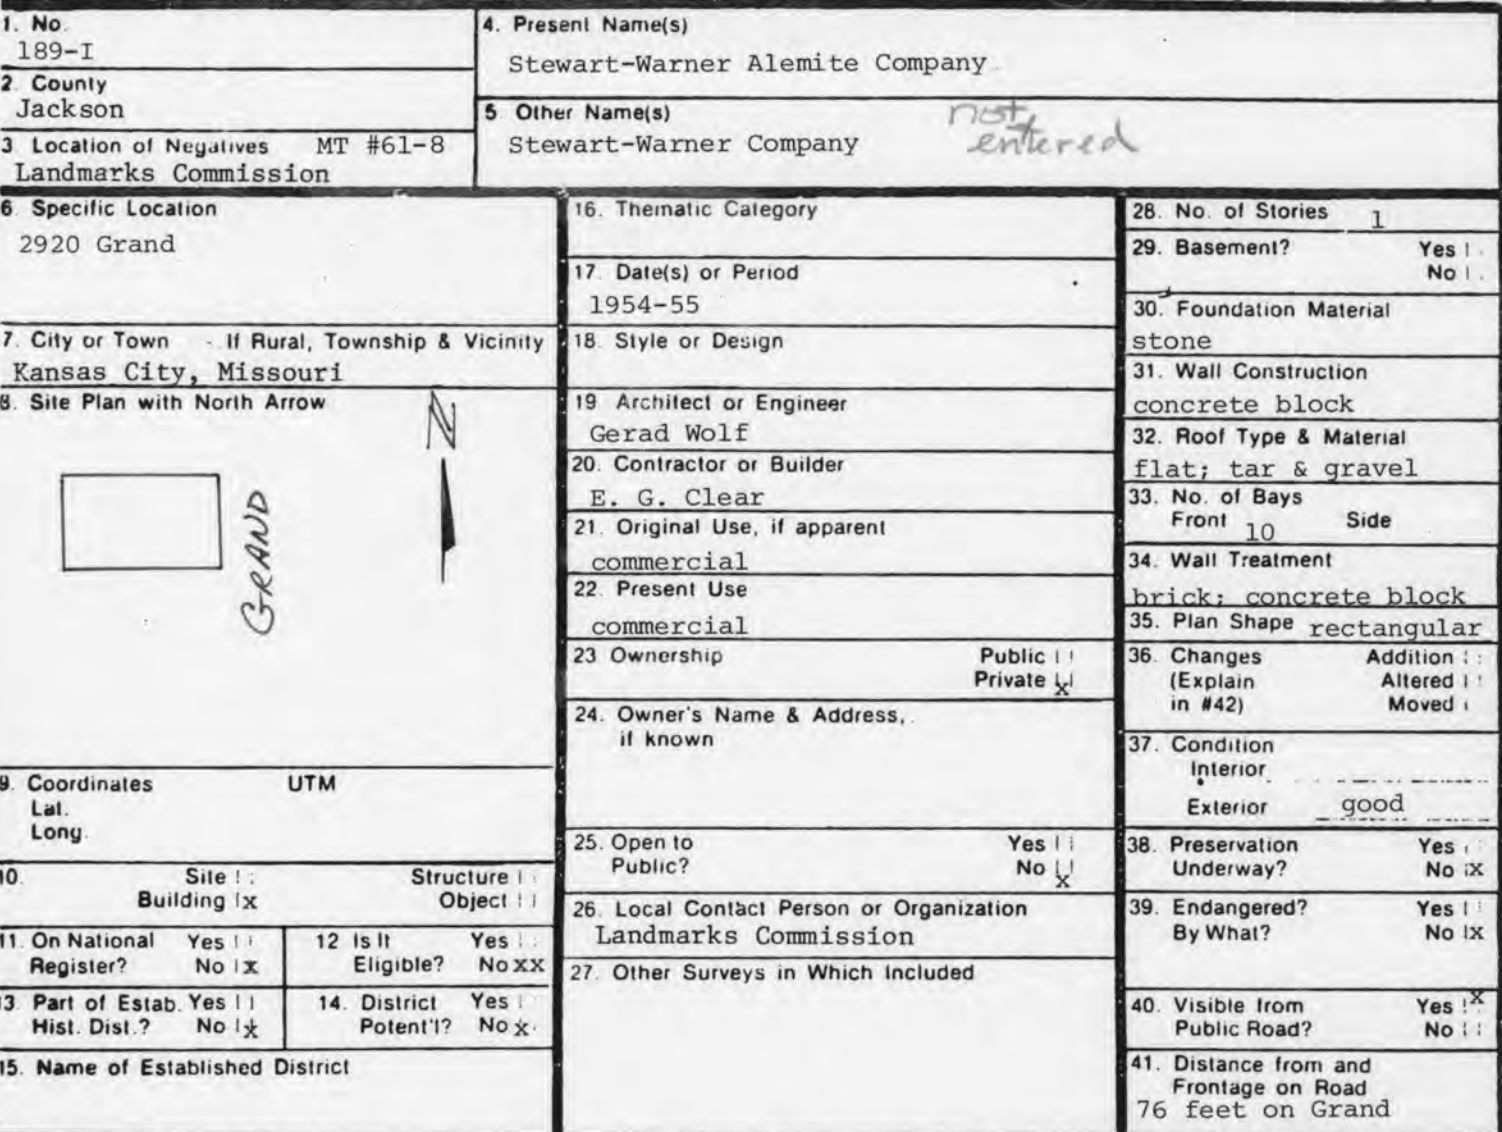 1. No.
189-I
2. County
Jackson
3 Location of Negatives MT #61-8
Landmarks Commission
4. Present Name(s)
Stewart-Warner Alemite Company
5 Other Name(s)
Stewart-Warner Company
not
entered
6. Specific Location
2920 Grand
7. City or Town If Rural, Township & Vicinity
Kansas City, Missouri
8. Site Plan with North Arrow
N
GRAND
9. Coordinates UTM
Lat.
Long.
10. Site Structure
Building x Object
11. On National Yes
Register? No x
12 Is It Yes
Eligible? No xx
13. Part of Estab. Yes
Hist. Dist.? No x
14. District Yes
Potent'l? No x
15. Name of Established District
16. Thematic Category
17. Date(s) or Period
1954-55
18. Style or Design
19 Architect or Engineer
Gerad Wolf
20. Contractor or Builder
E. G. Clear
21. Original Use, if apparent
commercial
22. Present Use
commercial
23 Ownership Public
Private x
24. Owner's Name & Address,
if known
25. Open to Yes
Public? No x
26. Local Contact Person or Organization
Landmarks Commission
27. Other Surveys in Which Included
28. No. of Stories 1
29. Basement? Yes
No
30. Foundation Material
stone
31. Wall Construction
concrete block
32. Roof Type & Material
flat; tar & gravel
33. No. of Bays
Front 10 Side
34. Wall Treatment
brick; concrete block
35. Plan Shape rectangular
36. Changes Addition
(Explain Altered
in #42) Moved
37. Condition
Interior
Exterior good
38. Preservation Yes
Underway? No x
39. Endangered? Yes
By What? No x
40. Visible from Yes x
Public Road? No
41. Distance from and
Frontage on Road
76 feet on Grand